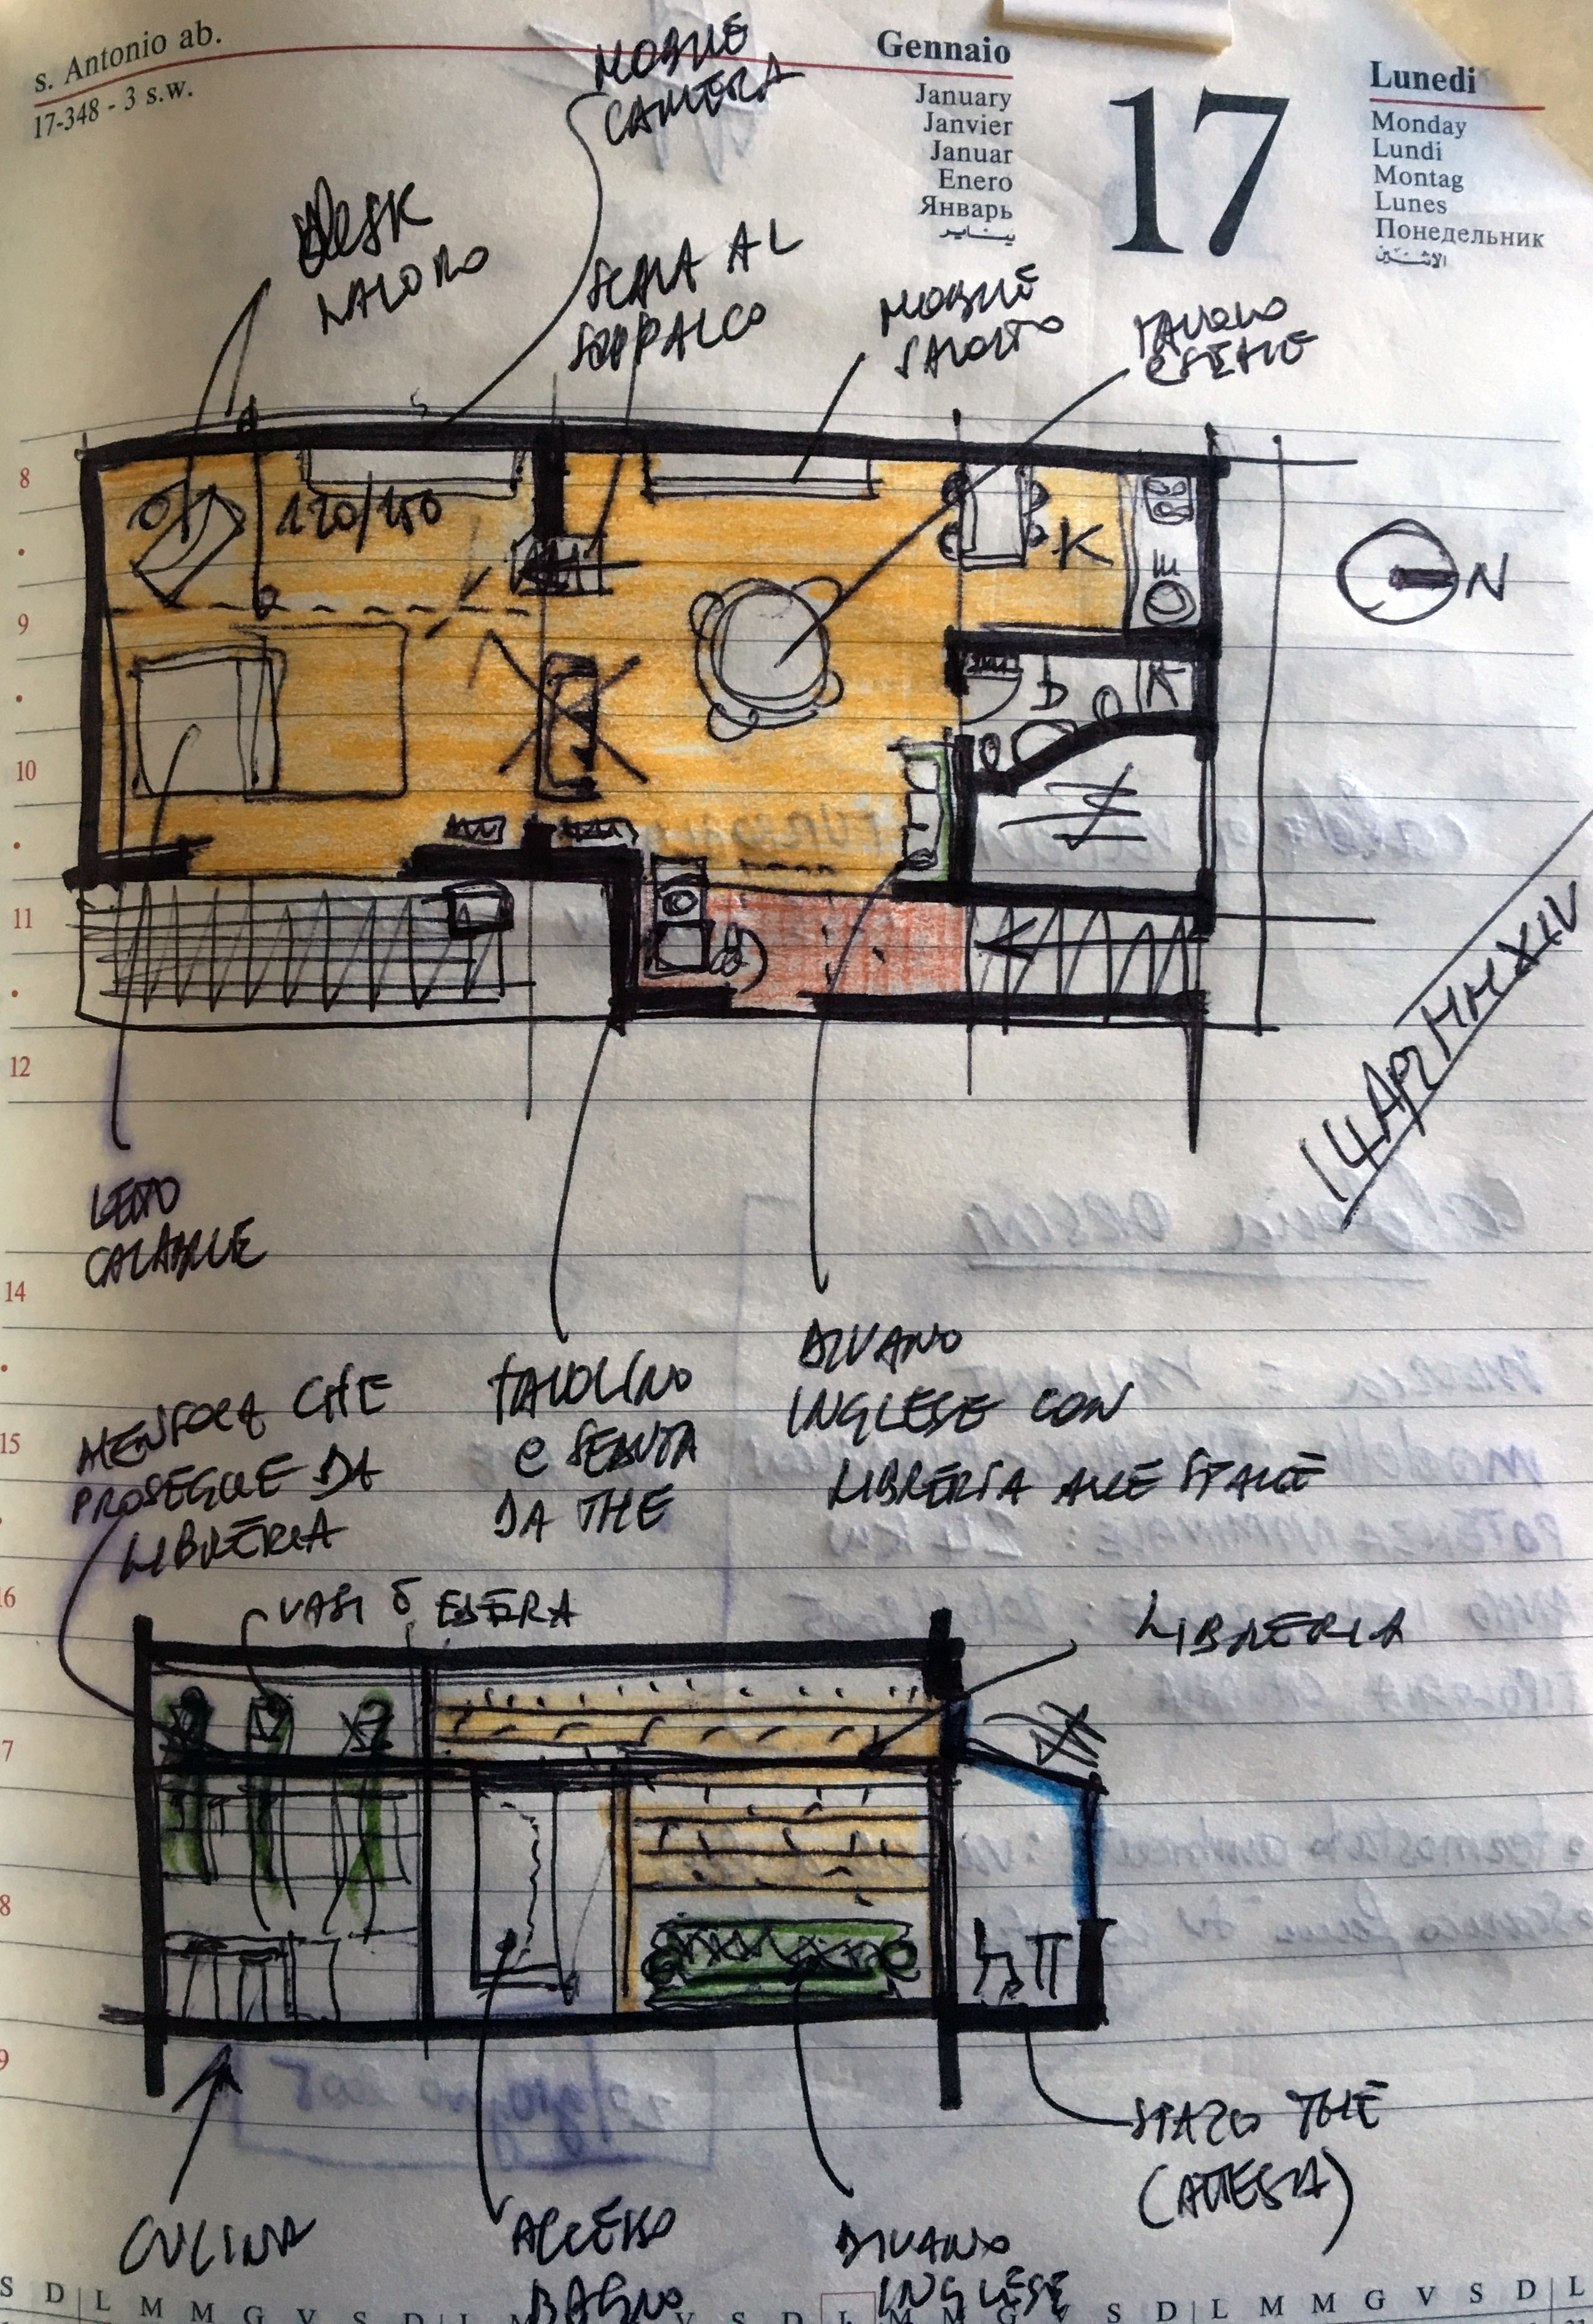 s. Antonio ab.
17-348 - 3 s.w.
Gennaio
January
Janvier
Januar
Enero
Январь
يناير
17
Lunedi
Monday
Lundi
Montag
Lunes
Понедельник
الاثنين
MOBILE
CAMERA
DESK
LAVORO
SCALA AL
SOPPALCO
MOBILE
SALOTTO
TAVOLO
ESTAVE
8
120/150
K
N
9
10
11
12
14 APR MMXIV
LETTO
CALABILE
14
MENSOLA CHE
PROSEGUE DA
LIBRERIA
TAVOLINO
e SEDUTA
DA THE
DIVANO
INGLESE CON
LIBRERIA ALLE SPALLE
15
16
VASI D EDERA
LIBRERIA
7
8
9
SPAZIO THE
(ATTESA)
CUCINA
ACCESSO
BAGNO
DIVANO
INGLESE
S D L M M G V S D L M M G V S D L M M G V S D L